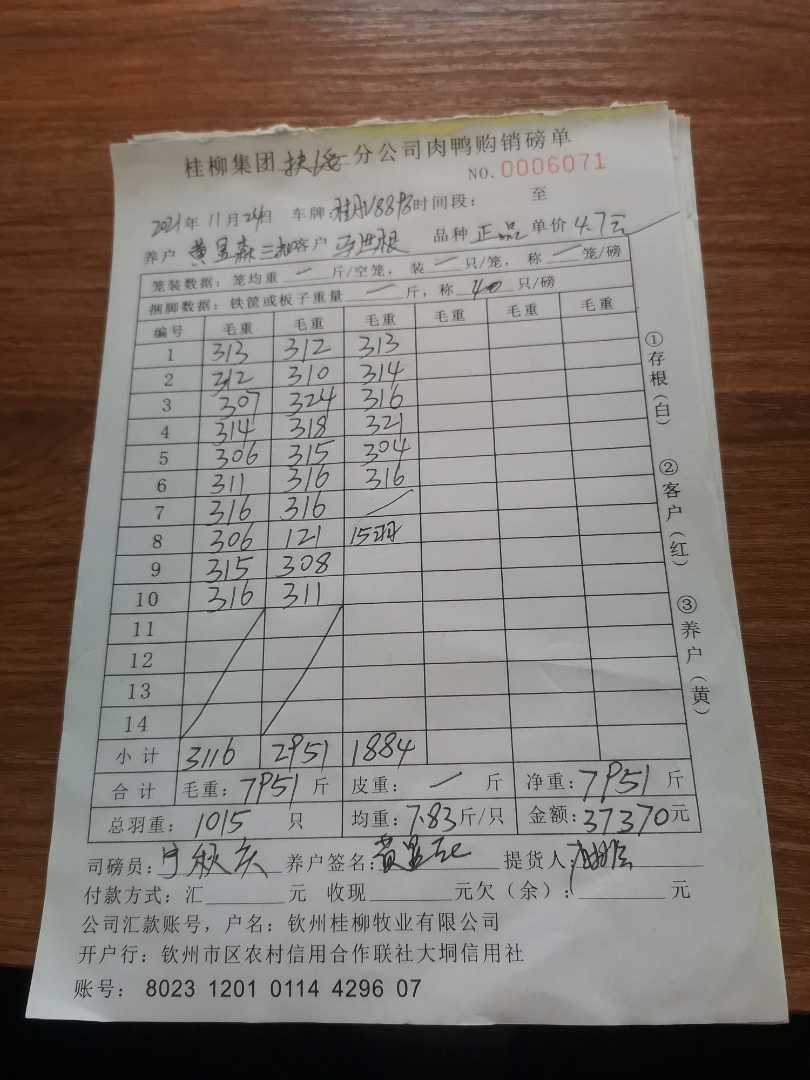 桂柳集团扶绥分公司肉鸭购销磅单
NO.0006071
2021年11月24日 车牌: 时间段: 至
养户 黄显森 客户 品种 正品 单价 4.7元
笼装数据: 笼均重 — 斤/空笼, 装 — 只/笼, 称 — 笼/磅
捆脚数据: 铁筐或板子重量 — 斤, 称 40 只/磅
编号 毛重 毛重 毛重 毛重 毛重 毛重
1 313 312 313
2 312 310 314
3 307 324 316
4 314 318 321
5 306 315 304
6 311 316 316
7 316 316 /
8 306 121 15羽
9 315 308
10 316 311
11
12
13
14
小计 3116 2951 1884
合计 毛重: 7951 斤 皮重: — 斤 净重: 7951 斤
总羽重: 1015 只 均重: 7.83 斤/只 金额: 37370 元
司磅员: 养户签名: 提货人:
付款方式: 汇 元 收现 元欠(余): 元
公司汇款账号, 户名: 钦州桂柳牧业有限公司
开户行: 钦州市区农村信用合作联社大垌信用社
账号: 8023 1201 0114 4296 07
①存根(白)
②客户(红)
③养户(黄)